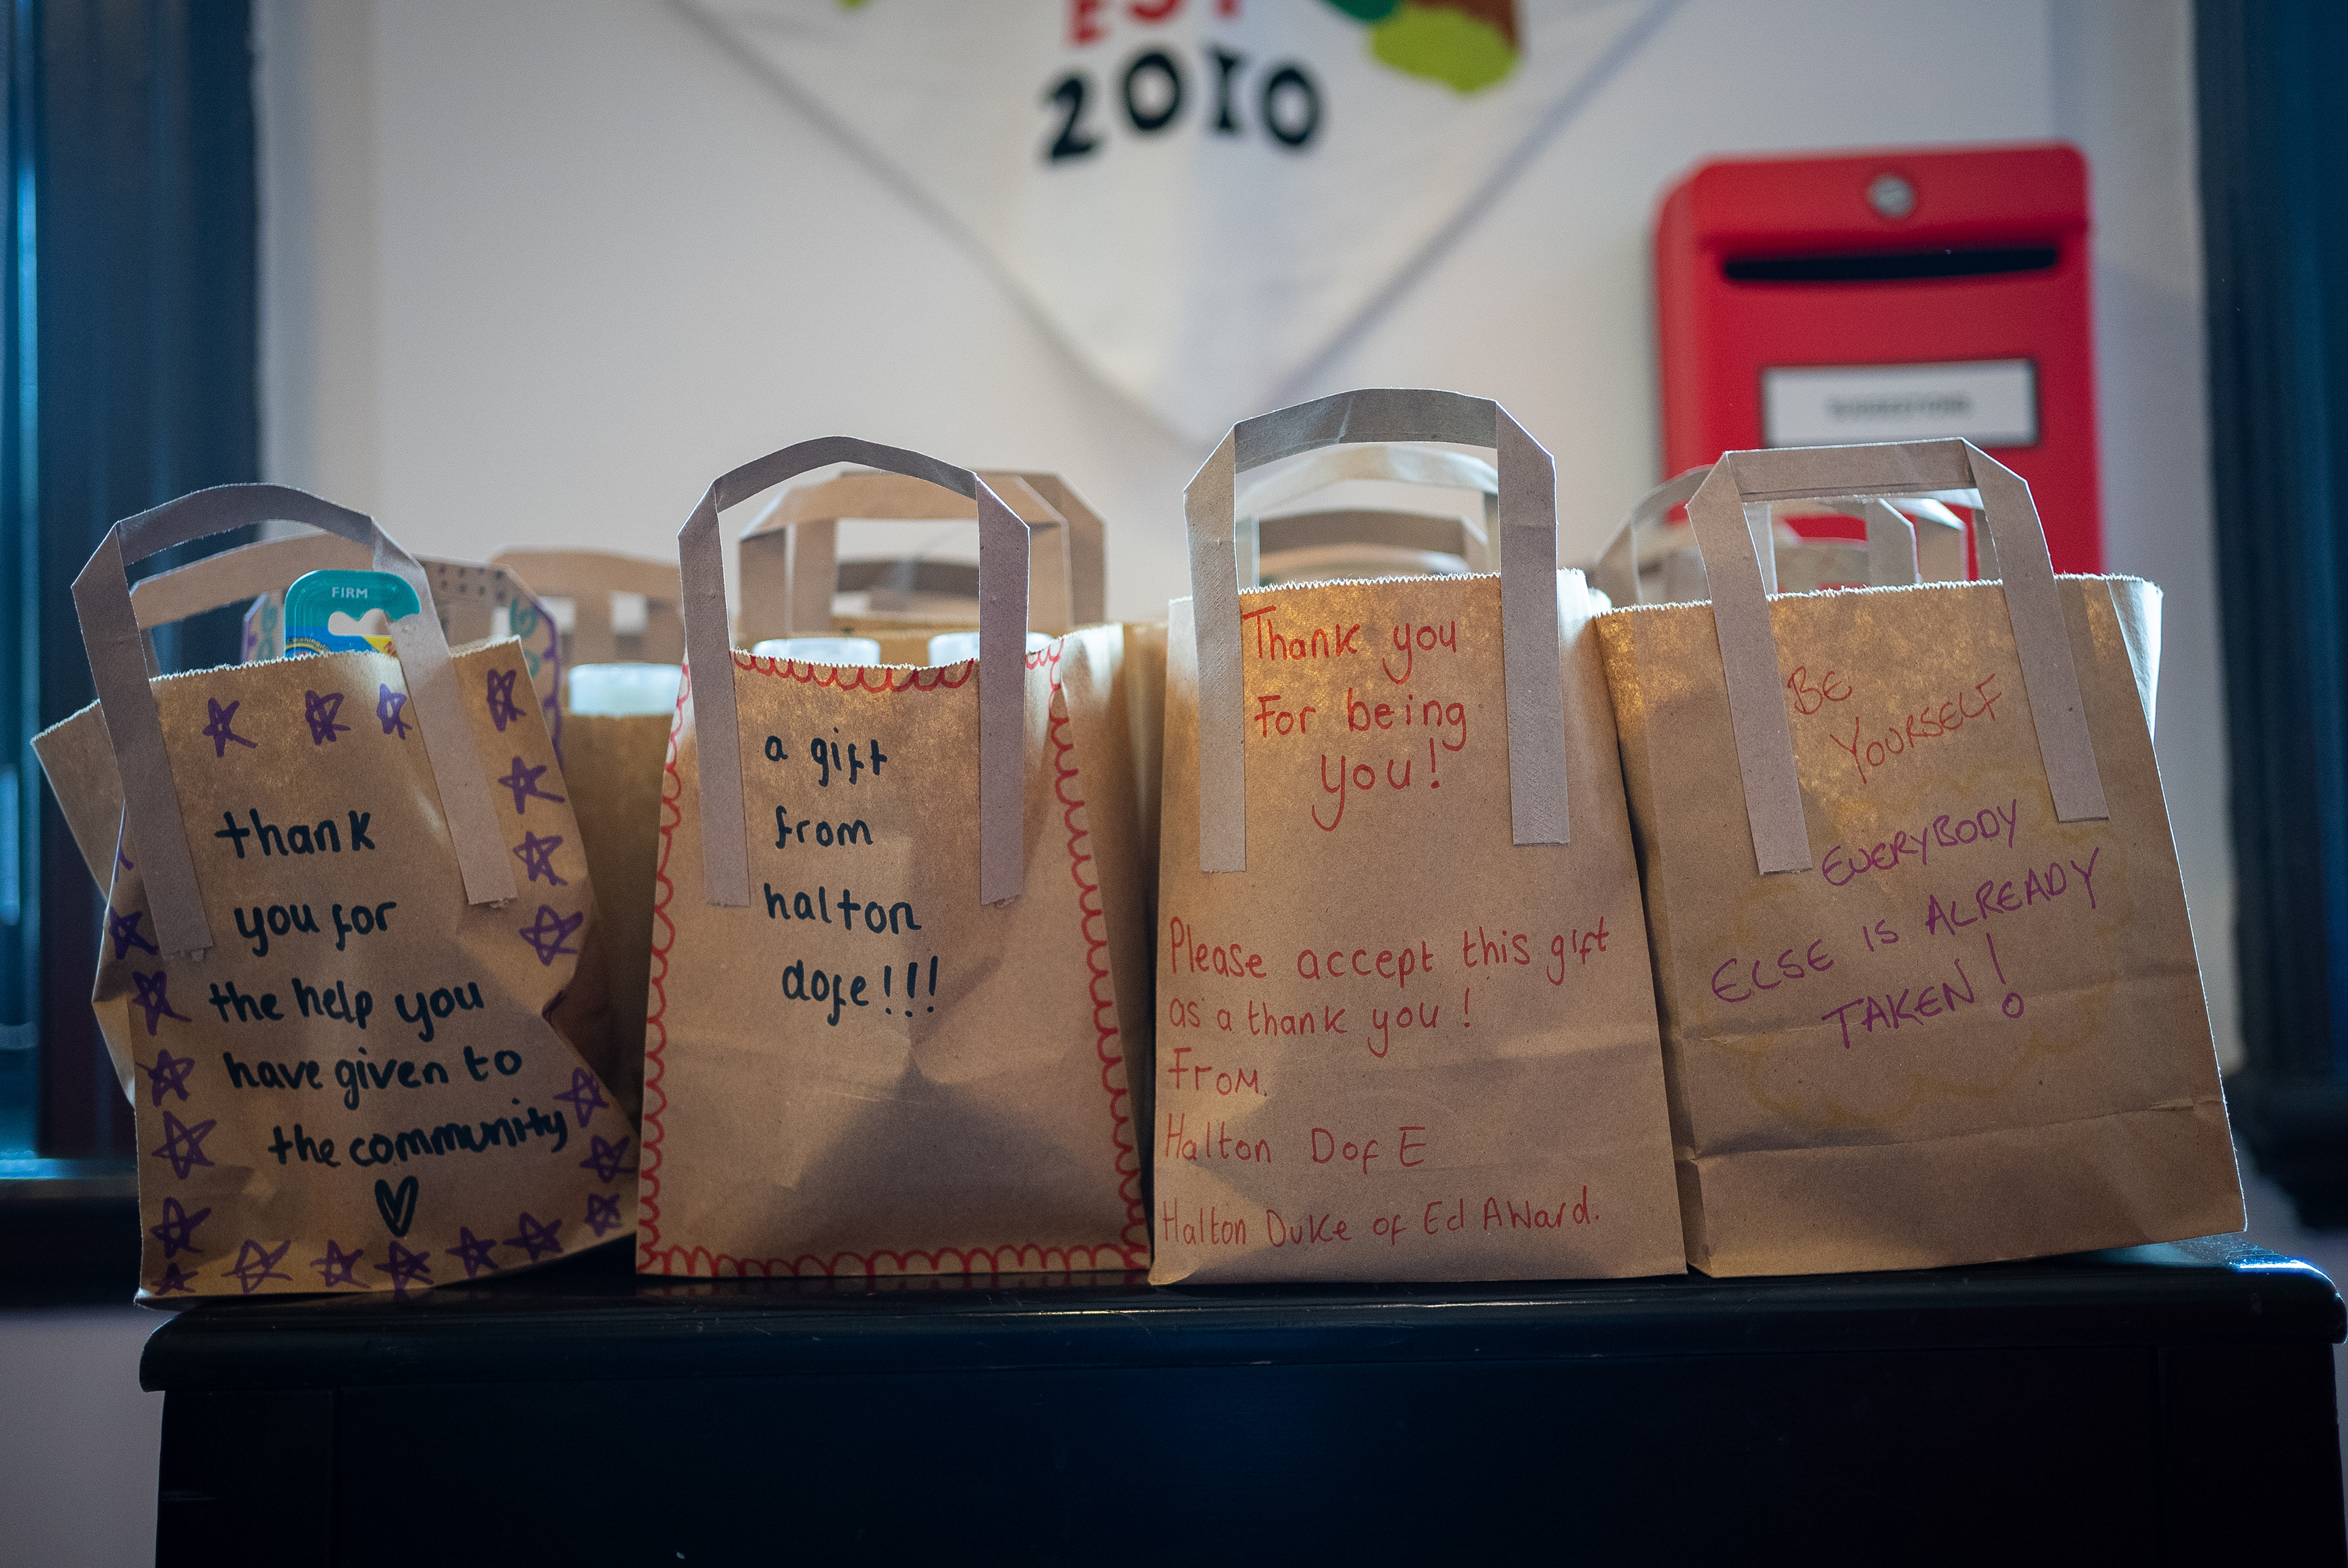 EST
2010
SUGGESTIONS
FIRM
thank
you for
the help you
have given to
the community
a gift
from
halton
dofe!!!
Thank you
For being
you!
Please accept this gift
as a thank you!
From.
Halton DofE
Halton Duke of Ed Award.
BE
YOURSELF
EVERYBODY
ELSE IS ALREADY
TAKEN!